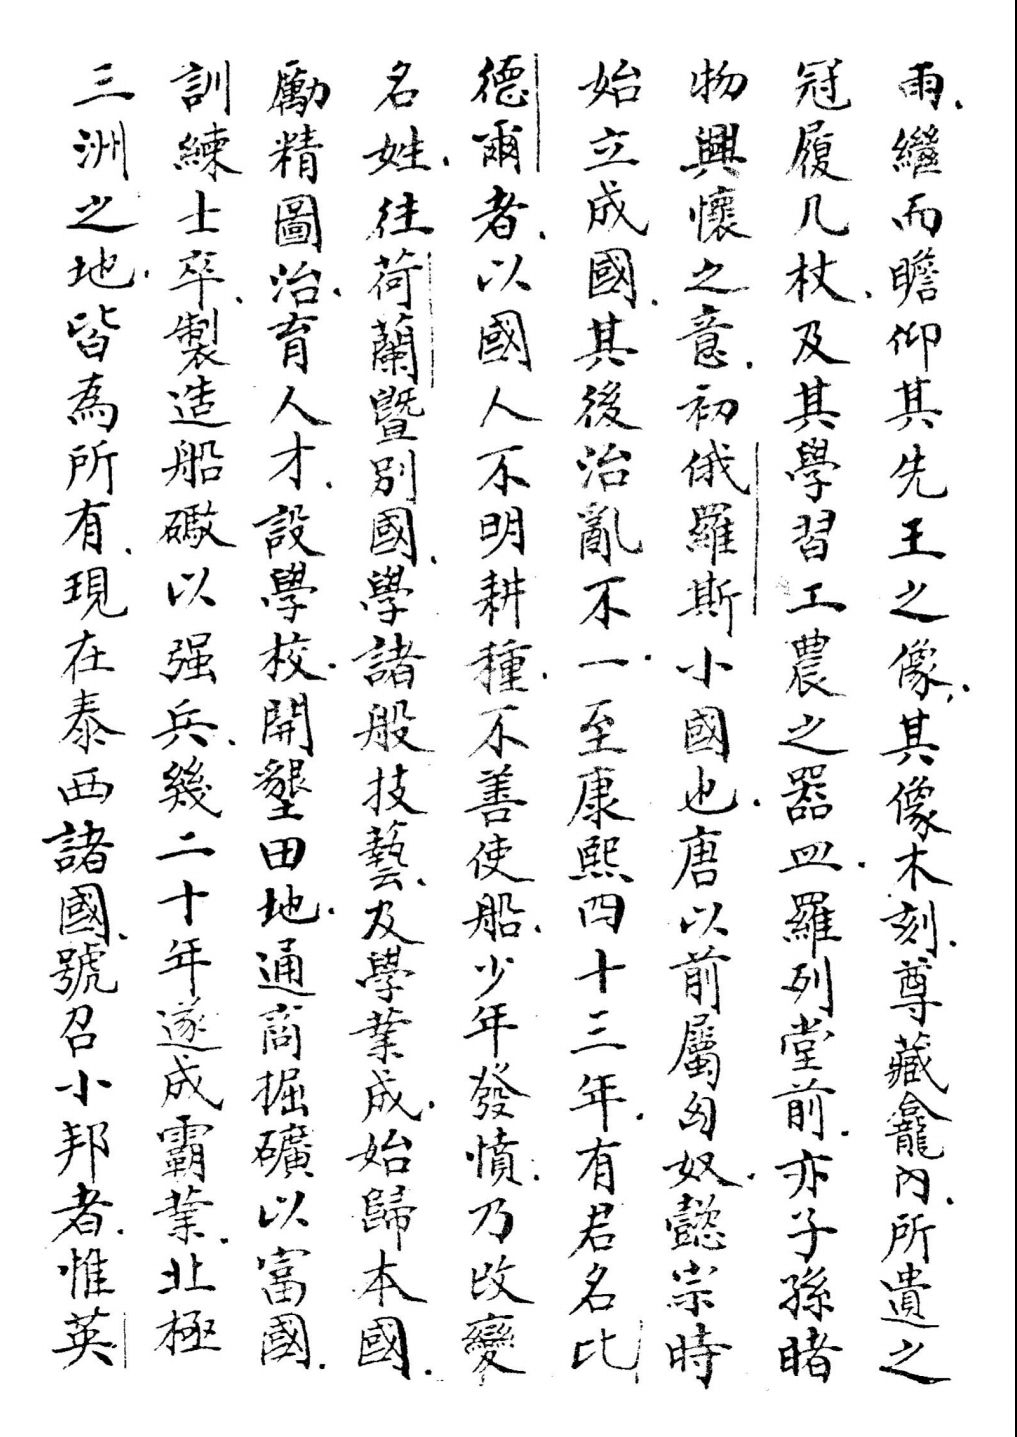 雨.繼而瞻仰其先王之像.其像木刻.尊藏龕內.所遺之
冠履几杖.及其學習工農之器皿.羅列堂前.亦子孫睹
物興懷之意.初俄羅斯小國也.唐以前屬匈奴.懿宗時
始立成國.其後治亂不一.至康熙四十三年.有君名比
德爾者.以國人不明耕種.不善使船.少年發憤.乃改變
名姓.往荷蘭暨別國.學諸般技藝.及學業成.始歸本國.
勵精圖治.育人才.設學校.開墾田地.通商掘礦以富國.
訓練士卒.製造船礮以强兵.幾二十年遂成霸業.北極
三洲之地.皆為所有.現在泰西諸國.號召小邦者.惟英